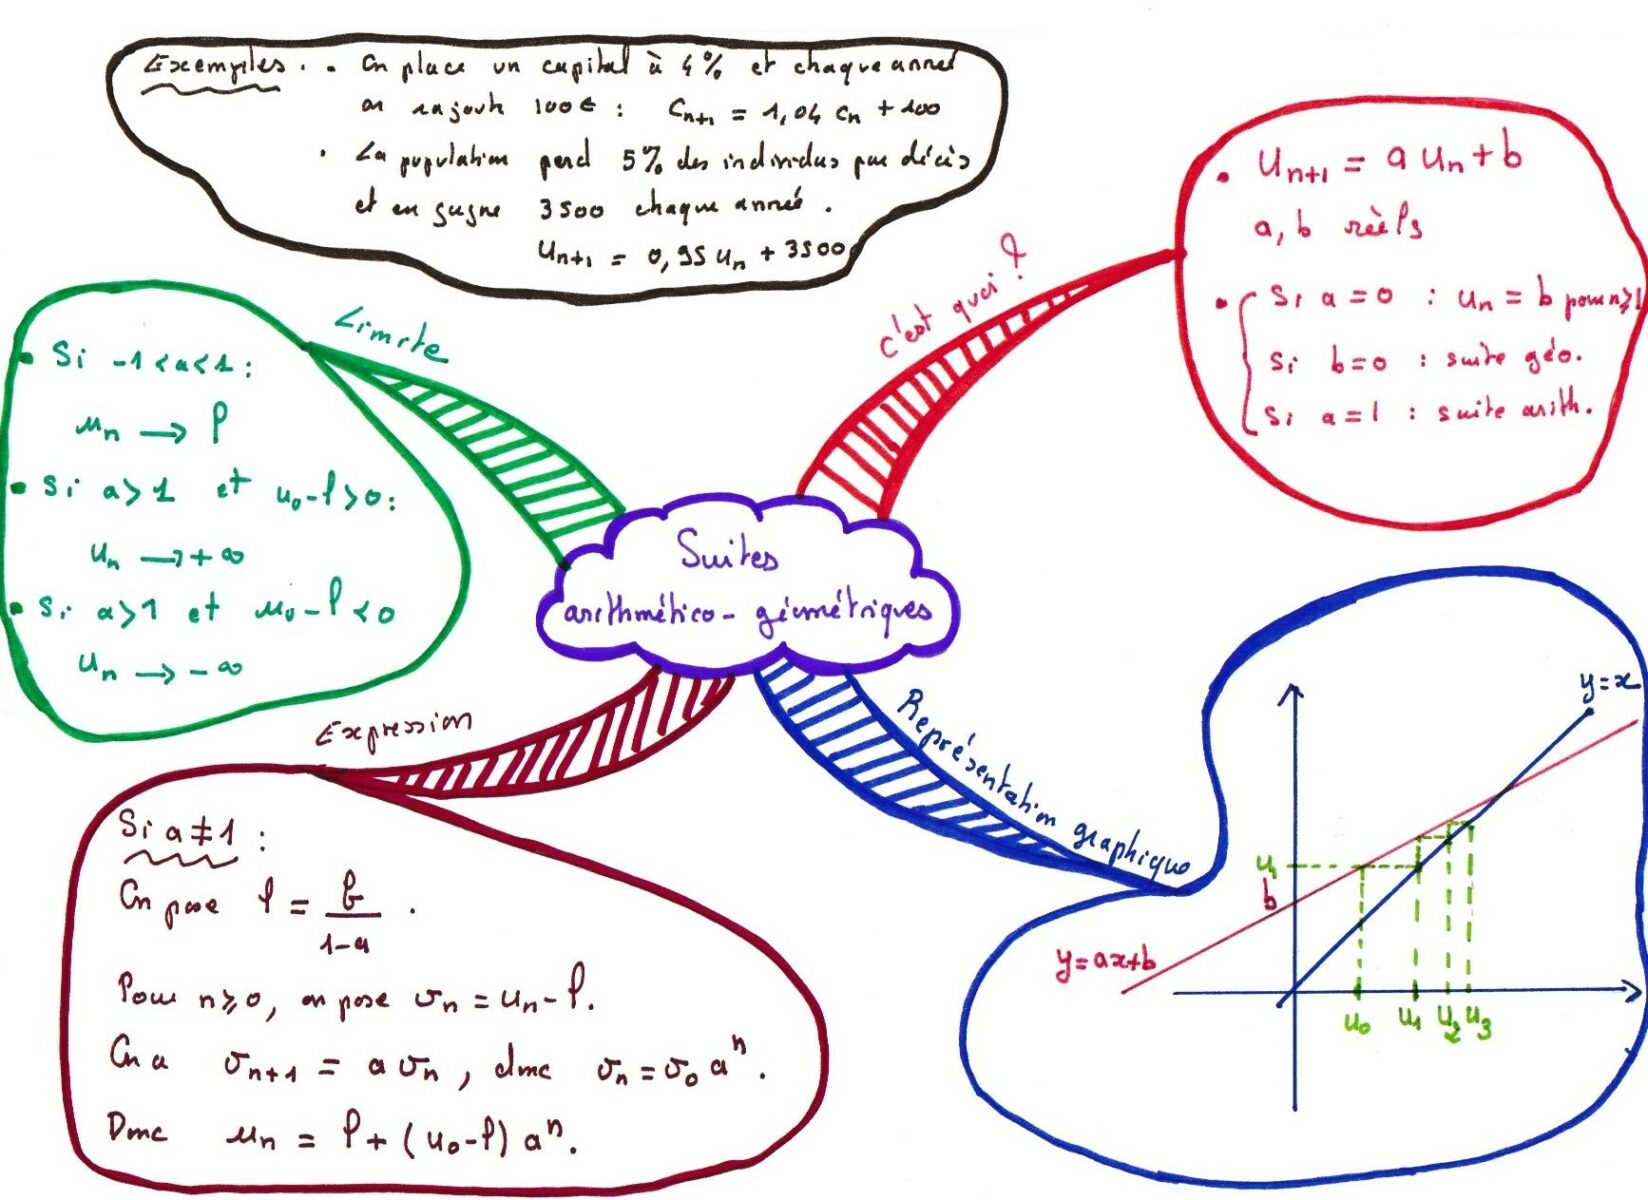 Exemples . . On place un capital à 4% et chaque année
on rajoute 100€ : Cn+1 = 1,04 Cn + 100
. La population perd 5% des individus par décès
et en gagne 3500 chaque année .
Un+1 = 0,95 Un + 3500
c'est quoi ?
. Un+1 = a Un + b
a, b réèls
. Si a = 0 : Un = b pour n ≥ 1
Si b = 0 : suite géo.
Si a = 1 : suite arith.
Limite
. Si -1 < a < 1 :
un → l
. Si a > 1 et u0 - l > 0 :
un → + ∞
. Si a > 1 et u0 - l < 0
un → - ∞
Suites
arithmético - géométriques
Expression
Si a ≠ 1 :
On pose l = b/(1-a) .
Pour n ≥ 0, on pose vn = un - l.
On a vn+1 = a vn , donc vn = v0 a^n .
Donc un = l + (u0 - l) a^n .
Représentation graphique
y=x
u1
b
y=ax+b
u0 u1 u2 u3